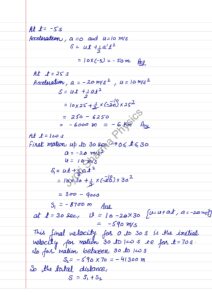 At t = -5s
Acceleration, a = 0 and u = 10 m/s
S = ut + 1/2 at²
= 10×(-5) = -50m Ans
At t = 25s
Acceleration, a = -20 m/s², u = 10 m/s
S = ut + 1/2 at²
= 10×25 + 1/2 × (-20) × 25²
= 250 - 6250
= -6000 m = -6 km Ans
At t = 100s
First motion up to 30 sec ⇒ 0 ≤ t ≤ 30
a = -20 m/s²
u = 10 m/s
S₁ = ut + 1/2 at²
= 10×30 + 1/2 × (-20) × 30²
= 300 - 9000
S₁ = -8700 m Ans
at t = 30 sec, v = 10 - 20×30 [u + at, a = -20 m/s²]
= -590 m/s
This final velocity for 0 to 30s is the initial
velocity for motion 30 to 100s so for t = 70s
So for motion between 30 to 100s
S₂ = -590 × 70 = -41300 m
So the total distance,
S = S₁ + S₂